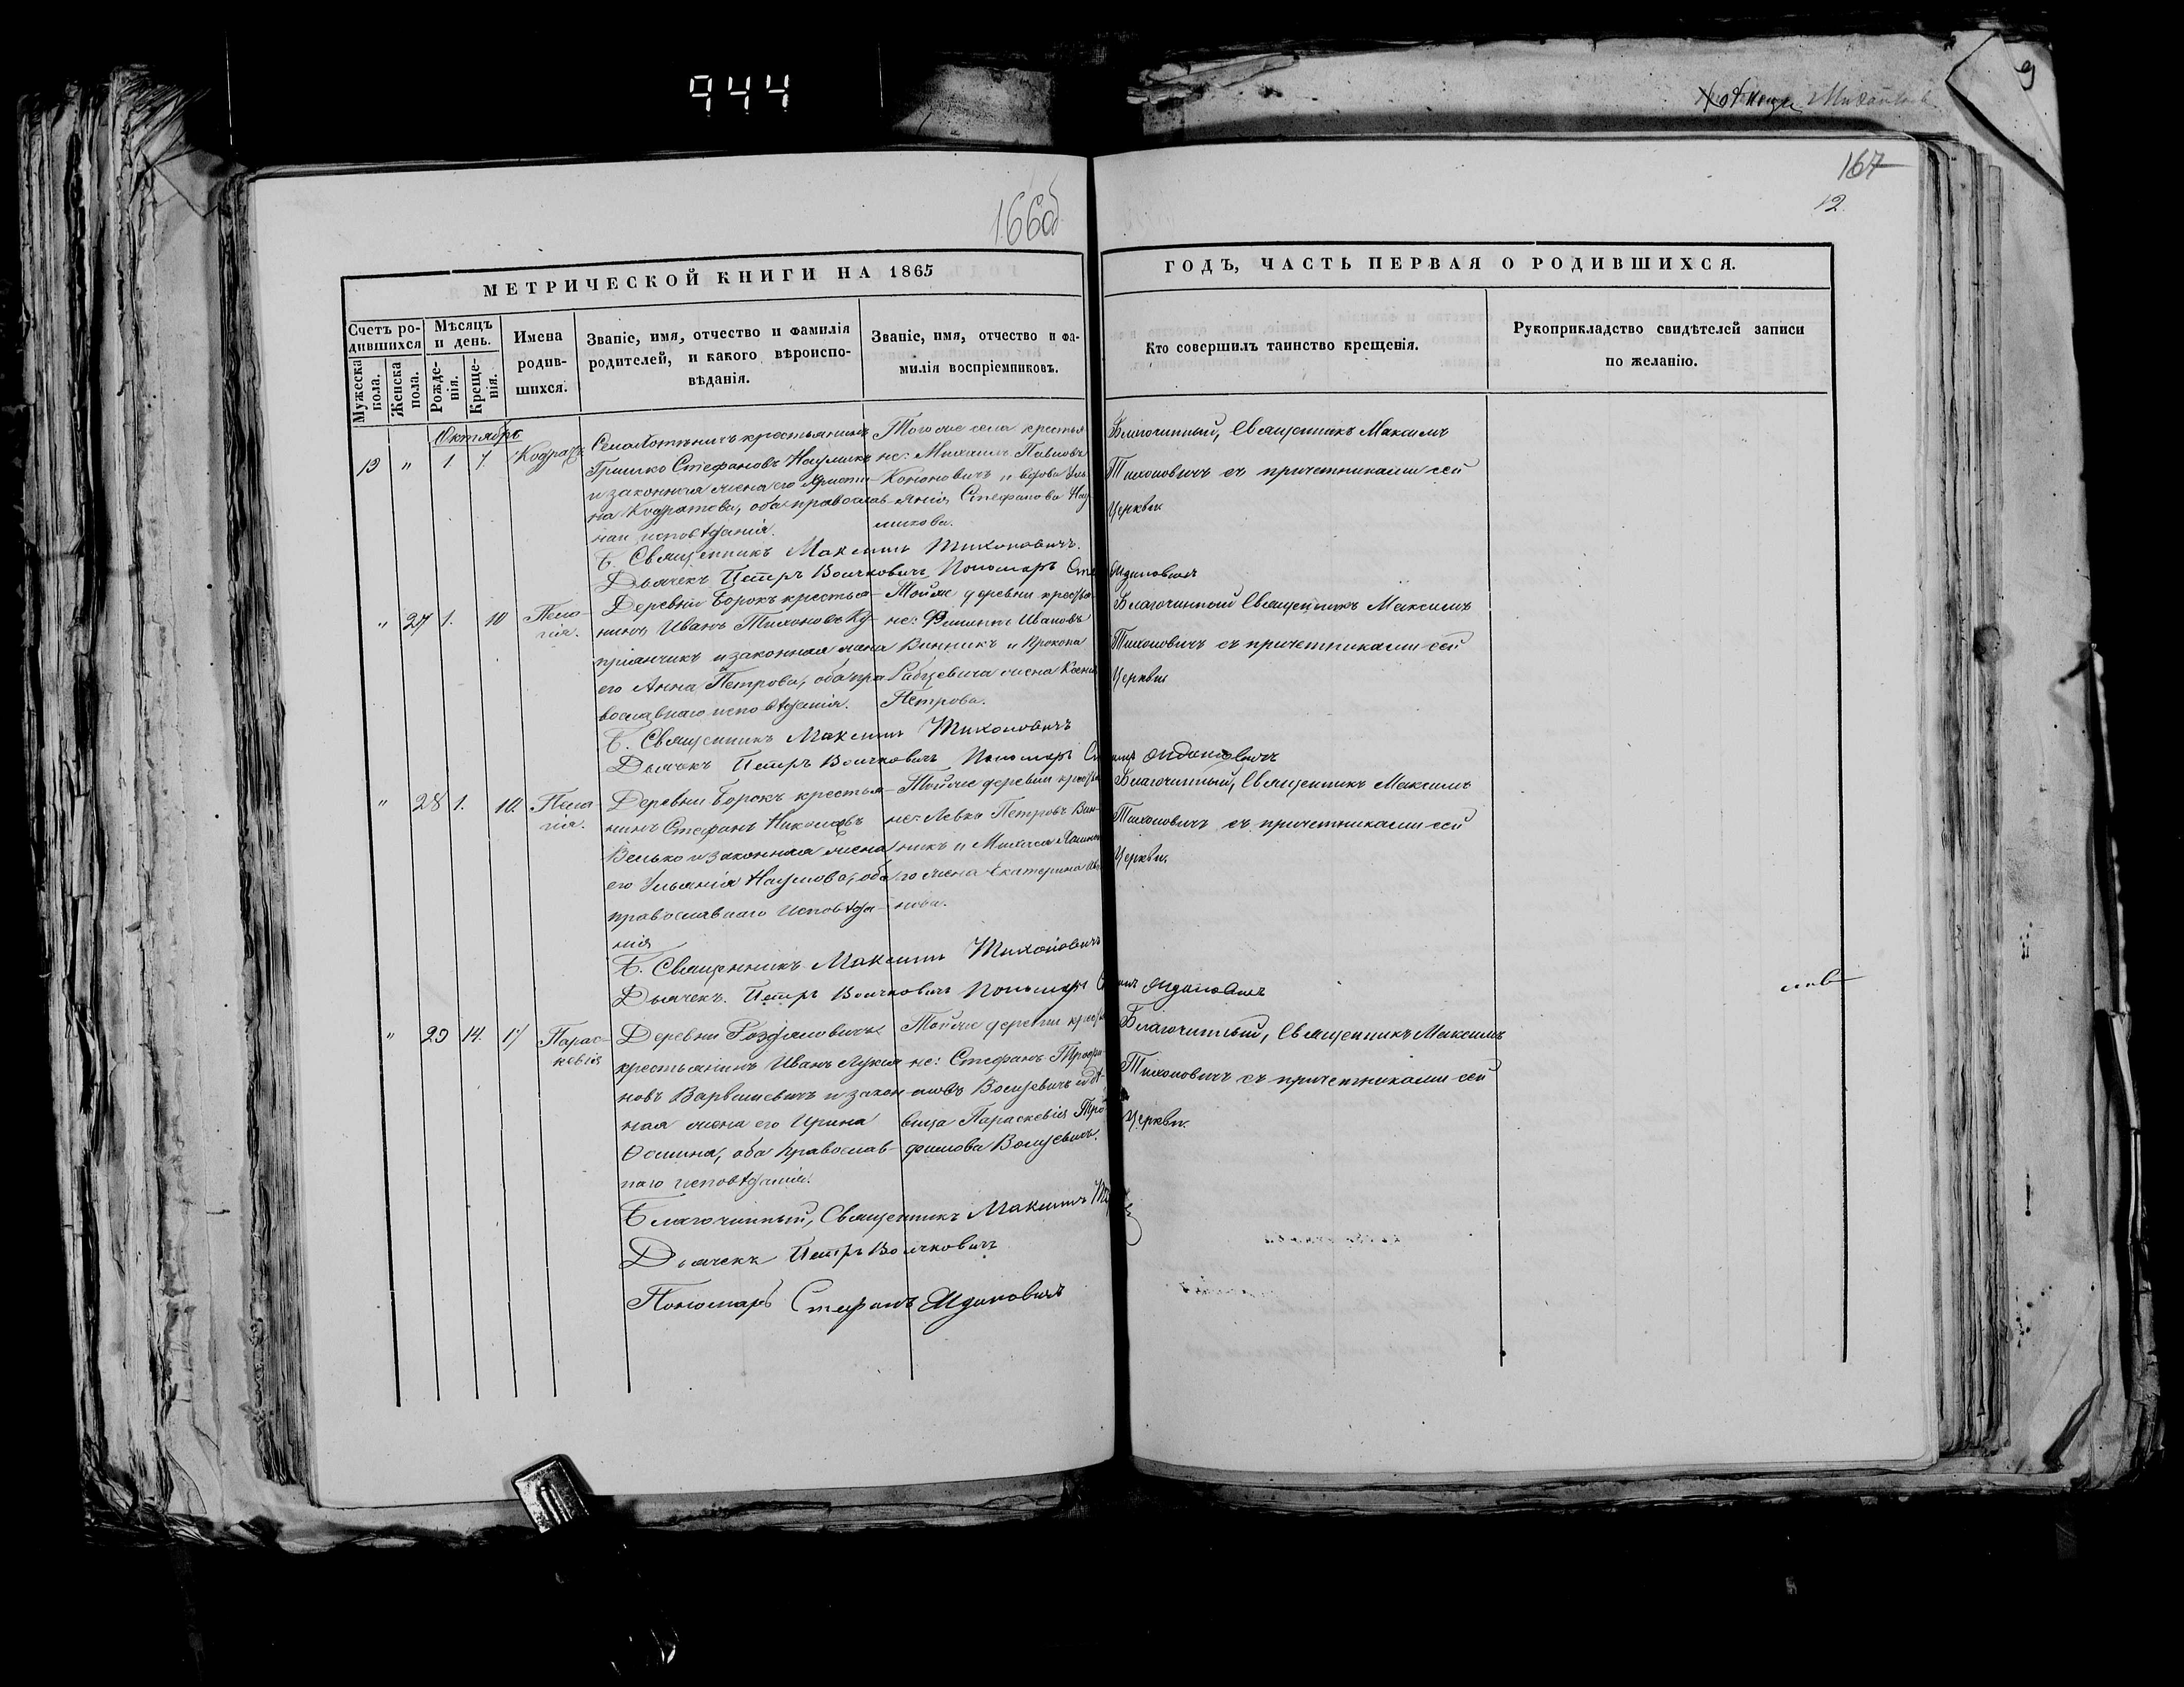 944
9
167
12
166об
МЕТРИЧЕСКОЙ КНИГИ НА 1865
ГОДЪ, ЧАСТЬ ПЕРВАЯ О РОДИВШИХСЯ.
Счетъ родившихся
Мужеска пола.
Женска пола.
Мѣсяцъ и день.
Рожденія.
Крещенія.
Имена родившихся.
Званіе, имя, отчество и фамилія
родителей, и какого вѣроиспо-
вѣданія.
Званіе, имя, отчество и фа-
милія воспріемниковъ.
Кто совершилъ таинство крещенія.
Рукоприкладство свидѣтелей записи
по желанію.
Октябрь
13 " 1. 7. Кодратъ
Села крестьянинъ
Гришко Стефановъ Наумикъ
и законная жена его Христи-
на Кодратова, оба православ-
наго исповѣданія.
Того же села крестья-
не: Михаилъ Павловъ
Кононовичъ и вдова Уль-
янія Стефанова Нау-
микова.
Благочинный, Священникъ Максимъ
Тихоновичъ съ причетниками сей
Церкви.
Б. Священникъ Максимъ Тихоновичъ.
Дьячекъ Петръ Волчковичъ Пономарь
" 27 1. 10 Пела-
гія.
Деревни Борокъ крестья-
нинъ Иванъ Тихоновъ Ку-
пріянчикъ и законная жена
его Анна Петрова, оба пра-
вославнаго исповѣданія.
Той же деревни крестья-
не: Филиппъ Ивановъ
Винникъ и Прокопа
Рабцевича жена Ксенія
Петрова.
Благочинный Священникъ Максимъ
Тихоновичъ съ причетниками сей
Церкви
Б. Священникъ Максимъ Тихоновичъ
Дьячекъ Петръ Волчковичъ Пономарь
" 28 1. 10. Пела
гія.
Деревни Борокъ крестья-
нинъ Стефанъ Николаевъ
Велько и законная жена
его Ульянія Наумова, оба
православнаго исповѣда-
нія
Той же деревни крестья
не: Левко Петровъ Вин-
никъ и
го жена Екатерина Ива
нова.
Благочинный, Священникъ Максимъ
Тихоновичъ съ причетниками сей
Церкви.
Б. Священникъ Максимъ Тихоновичъ
Дьячекъ. Петръ Волчковичъ Пономарь
" 29 14. 17 Парас-
кевія
Деревни Роздяловичъ
крестьянинъ Иванъ Лукія-
новъ Варвашевичъ и закон-
ная жена его Ирина
Фомина, оба православ-
наго исповѣданія.
Той же деревни крестья
не: Стефанъ Трофи-
мовъ Воицевичъ и дѣ-
вица Параскевія Тро-
фимова Воицевичъ.
Благочинный, Священникъ Максимъ
Тихоновичъ съ причетниками сей
Церкви.
Благочинный, Священникъ Максимъ
Дьячекъ Петръ Волчковичъ
Пономарь Стефанъ